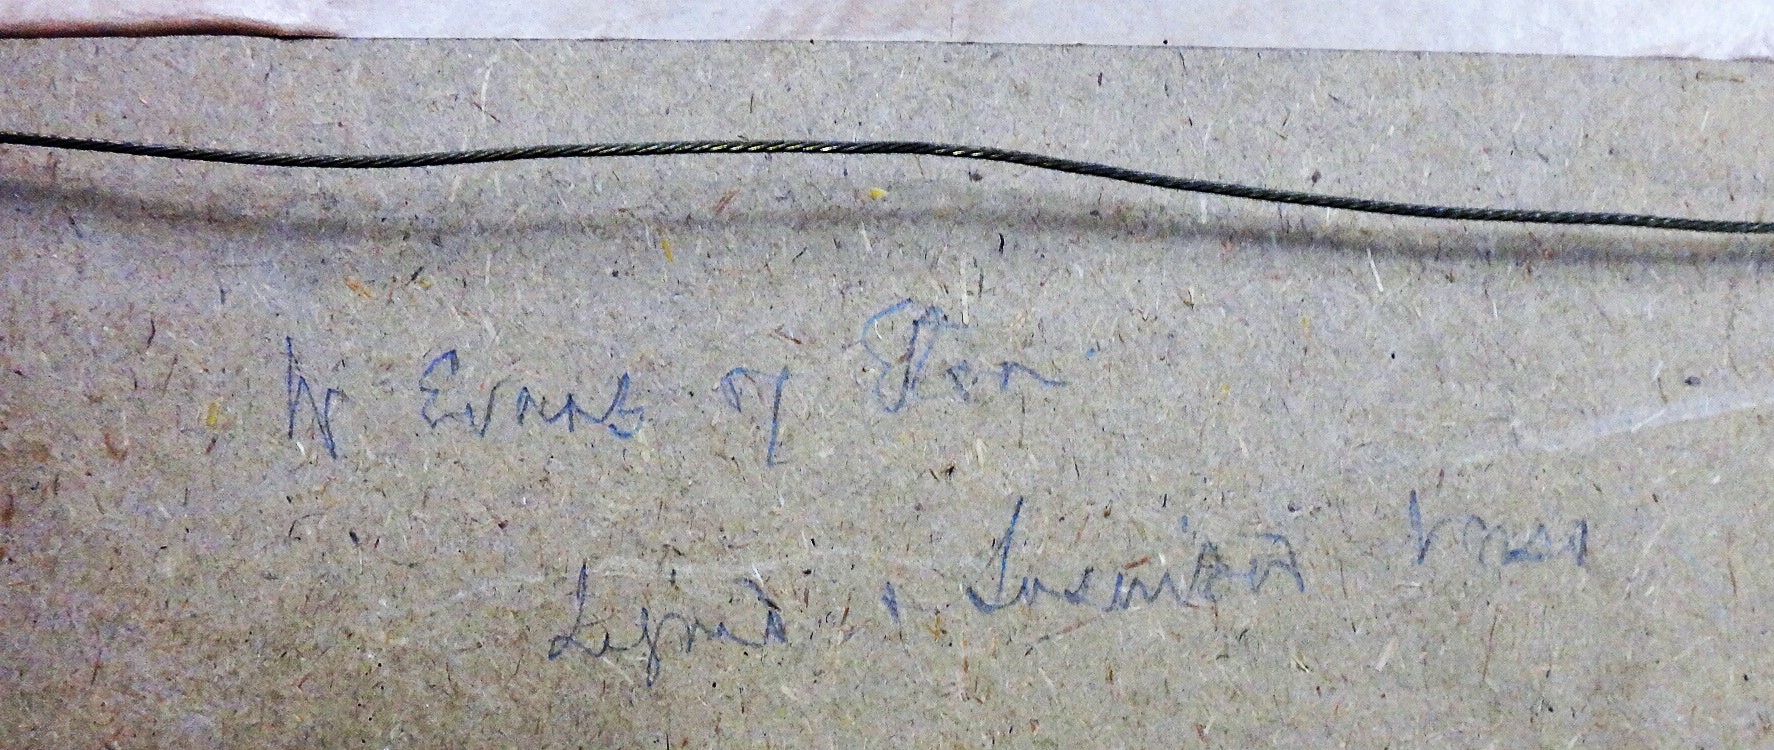 W Evans of Eton
Signed & Inscribed Verso